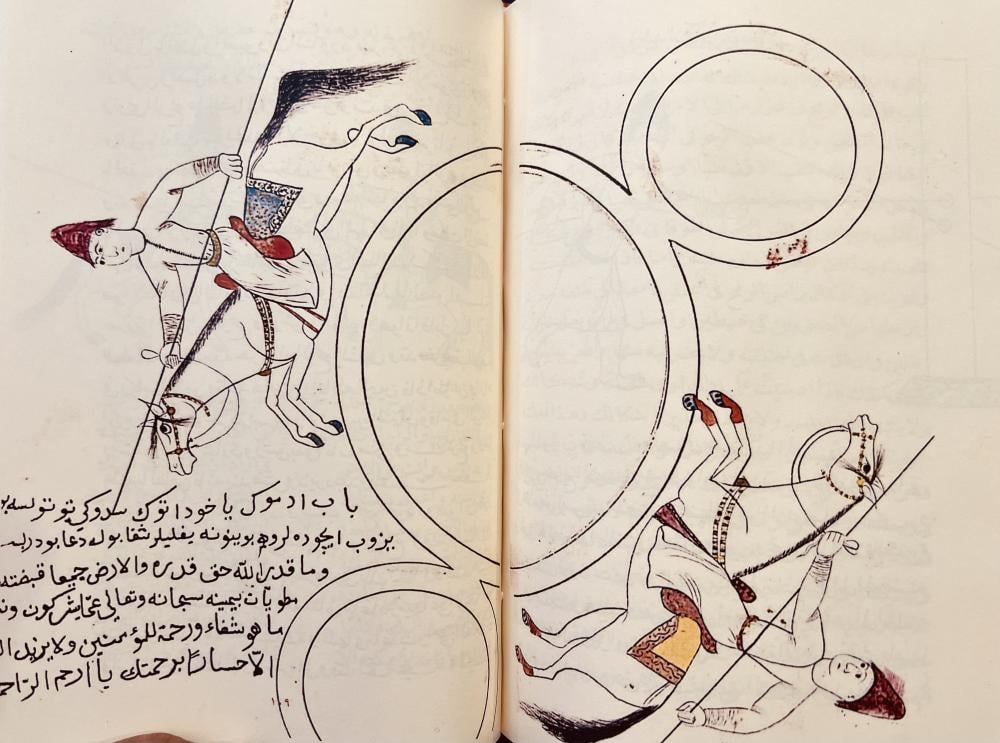 باب ادموك ياخود اتوك سدوكى توتولسه
يزوب ايچوده لروهم بوينونه بغليلر شفا بوله دعا بودر بسم
وما قدر الله حق قدره والارض جميعا قبضته
مطويات بيمينه سبحانه وتعالى عما يشركون
ما هو شفاء ورحمة للمؤمنين ولا يزيد
الا خسارا برحمتك يا ارحم الراحم
١٠٩